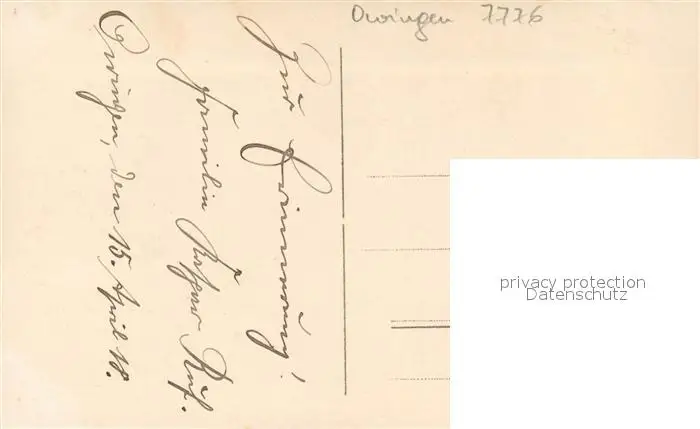 Owingen 7776
Zur Erinnerung!
Familie Ruf.
Owingen, den 15. April 18.
privacy protection
Datenschutz